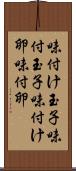 味付け玉子味
付玉子味付け
卵味付卵